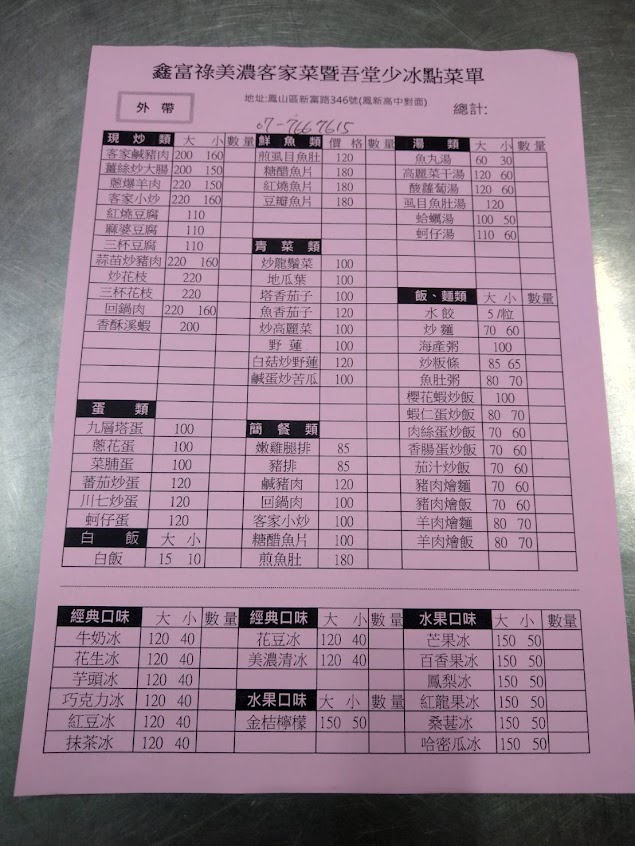 鑫富祿美濃客家菜暨吾堂少冰點菜單
外帶
地址:鳳山區新富路346號(鳳新高中對面)
總計:
07-7667615
現炒類 大 小 數量
客家鹹豬肉 200 160
薑絲炒大腸 200 150
蔥爆羊肉 220 150
客家小炒 220 160
紅燒豆腐 110
麻婆豆腐 110
三杯豆腐 110
蒜苗炒豬肉 220 160
炒花枝 220
三杯花枝 220
回鍋肉 220 160
香酥溪蝦 200
蛋類
九層塔蛋 100
蔥花蛋 100
菜脯蛋 100
蕃茄炒蛋 120
川七炒蛋 120
蚵仔蛋 120
白飯 大 小
白飯 15 10
鮮魚類 價格 數量
煎虱目魚肚 120
糖醋魚片 180
紅燒魚片 180
豆瓣魚片 180
青菜類
炒龍鬚菜 100
地瓜葉 100
塔香茄子 100
魚香茄子 120
炒高麗菜 100
野蓮 100
白菇炒野蓮 120
鹹蛋炒苦瓜 100
簡餐類
嫩雞腿排 85
豬排 85
鹹豬肉 120
回鍋肉 100
客家小炒 100
糖醋魚片 100
煎魚肚 180
湯類 大 小 數量
魚丸湯 60 30
高麗菜干湯 120 60
酸蘿蔔湯 120 60
虱目魚肚湯 120
蛤蠣湯 100 50
蚵仔湯 110 60
飯、麵類 大 小 數量
水餃 5/粒
炒麵 70 60
海產粥 100
炒粄條 85 65
魚肚粥 80 70
櫻花蝦炒飯 100
蝦仁蛋炒飯 80 70
肉絲蛋炒飯 70 60
香腸蛋炒飯 70 60
茄汁炒飯 70 60
豬肉燴麵 70 60
豬肉燴飯 70 60
羊肉燴麵 80 70
羊肉燴飯 80 70
經典口味 大 小 數量
牛奶冰 120 40
花生冰 120 40
芋頭冰 120 40
巧克力冰 120 40
紅豆冰 120 40
抹茶冰 120 40
經典口味 大 小 數量
花豆冰 120 40
美濃清冰 120 40
水果口味 大 小 數量
金桔檸檬 150 50
水果口味 大 小 數量
芒果冰 150 50
百香果冰 150 50
鳳梨冰 150 50
紅龍果冰 150 50
桑葚冰 150 50
哈密瓜冰 150 50